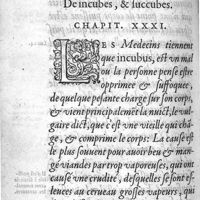 De incubes, & succubes.
CHAPIT. XXXI.
LES Medecins tiennent
que incubus, est vn mal
ou la personne pense estre
opprimee & suffoquee,
de quelque pesante charge sur son corps,
& vient principalemẽt la nuict, le vul-
gaire dict, que c'est vne vieille qui char-
ge, & comprime le corps: La cause est
le plus souuent pour auoir beu & mãgé
viandes par trop vaporeuses, qui ont
causé vne crudité, desquelles se sont es-
leuees au cerueau grosses vapeurs, qui